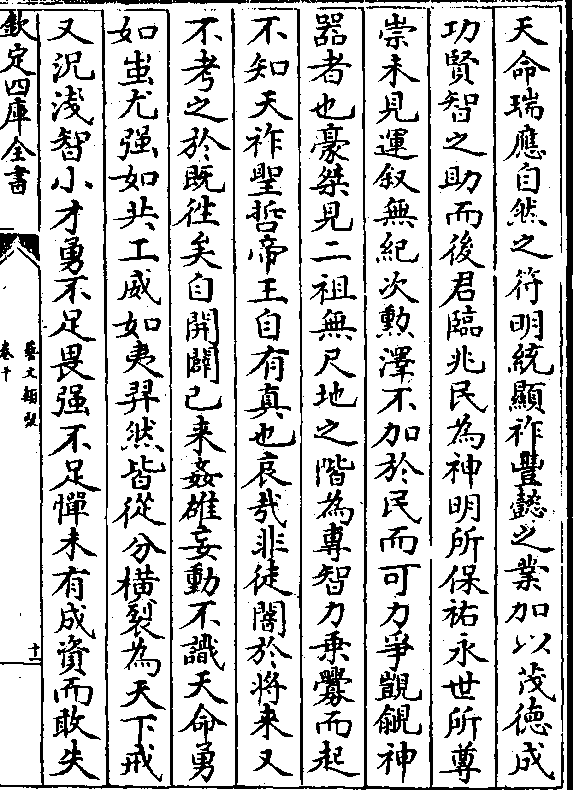 天命瑞應自然之符明統顯祚豐懿之業加以茂德成
功賢智之助而後君臨兆民為神明所保祐永世所尊
崇未見運叙無紀次勲澤不加於民而可力爭覬覦神
器者也豪桀見二祖無尺地之階為専智力乗釁而起
不知天祚聖哲帝王自有真也哀㢤非徒闇於將来又
不考之於既徃矣自開闢已来姦雄妄動不識天命勇
如蚩尤强如共工威如夷羿然皆從分横裂為天下戒
又況淺智小才勇不足畏强不足憚未有成資而敢失
欽定四庫全書
藝文類聚
卷十
十二